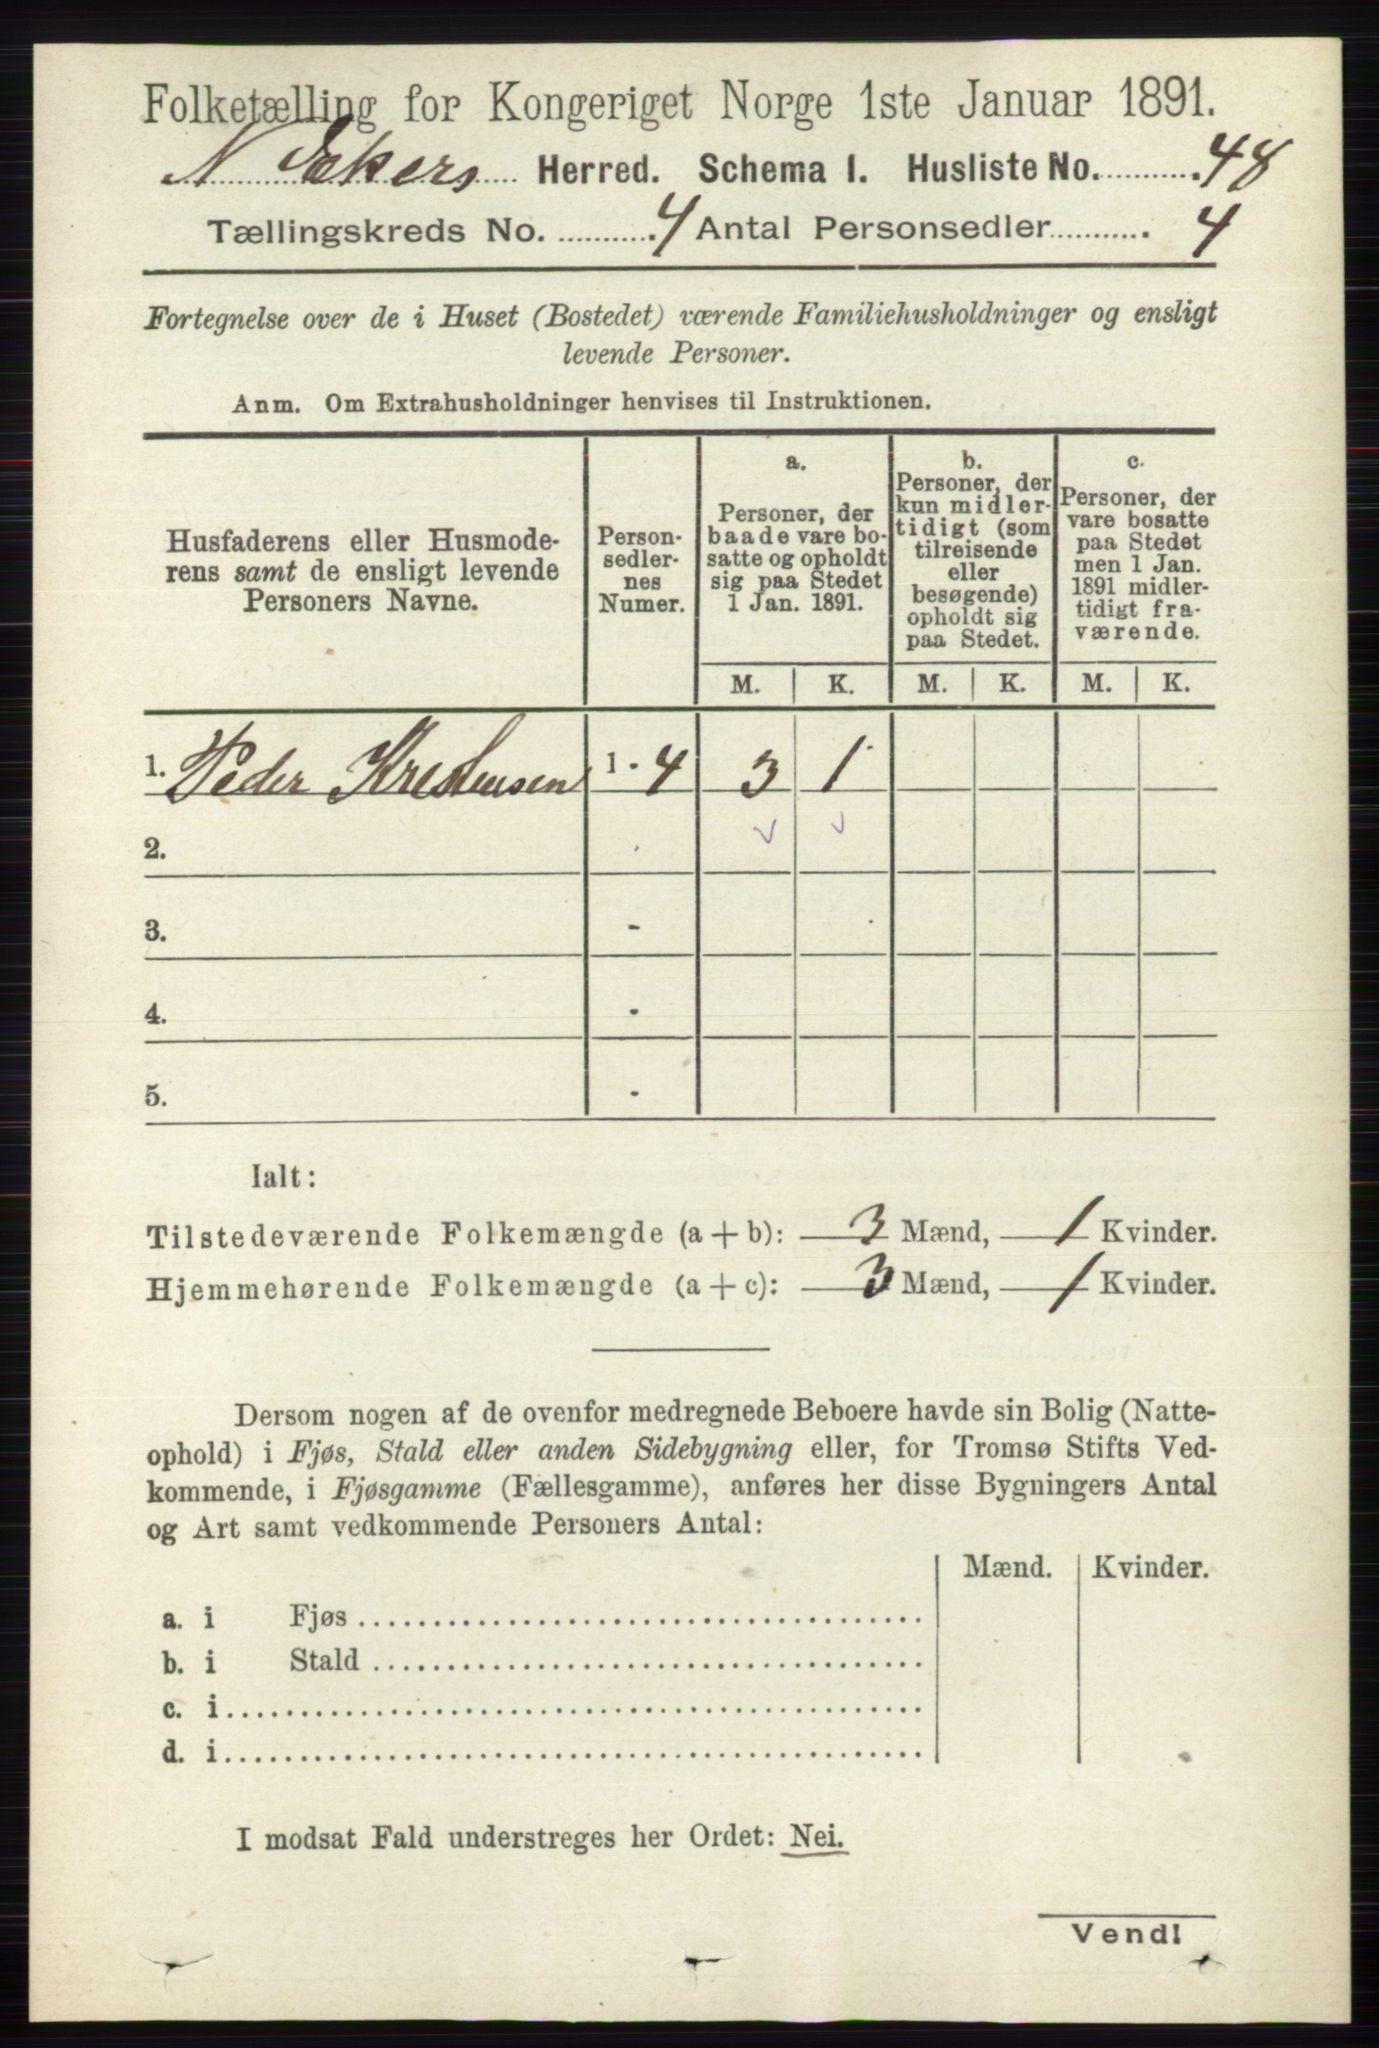 Folketælling for Kongeriget Norge 1ste Januar 1891.
N. Ekers Herred. Schema I. Husliste No. 48
Tællingskreds No. 4 Antal Personsedler 4
Fortegnelse over de i Huset (Bostedet) værende Familiehusholdninger og ensligt
levende Personer.
Anm. Om Extrahusholdninger henvises til Instruktionen.
Husfaderens eller Husmode-
rens samt de ensligt levende
Personers Navne.
Person-
sedler-
nes
Numer.
a.
Personer, der
baade vare bo-
satte og opholdt
sig paa Stedet
1 Jan. 1891.
b.
Personer, der
kun midler-
tidigt (som
tilreisende
eller
besøgende)
opholdt sig
paa Stedet.
c.
Personer, der
vare bosatte
paa Stedet
men 1 Jan.
1891 midler-
tidigt fra-
værende.
M. K. M. K. M. K.
1. Peder Kristensen 1 - 4 3 1
2. -
3. -
4. -
5. -
Ialt:
Tilstedeværende Folkemængde (a + b): 3 Mænd, 1 Kvinder.
Hjemmehørende Folkemængde (a + c): 3 Mænd, 1 Kvinder.
Dersom nogen af de ovenfor medregnede Beboere havde sin Bolig (Natte-
ophold) i Fjøs, Stald eller anden Sidebygning eller, for Tromsø Stifts Ved-
kommende, i Fjøsgamme (Fællesgamme), anføres her disse Bygningers Antal
og Art samt vedkommende Personers Antal:
Mænd. Kvinder.
a. i Fjøs
b. i Stald
c. i
d. i
I modsat Fald understreges her Ordet: Nei.
Vend!